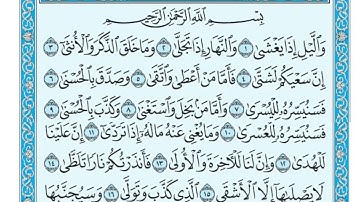 بِسْمِ اللَّهِ الرَّحْمَٰنِ الرَّحِيمِ
وَاللَّيْلِ إِذَا يَغْشَىٰ ١ وَالنَّهَارِ إِذَا تَجَلَّىٰ ٢ وَمَا خَلَقَ الذَّكَرَ وَالْأُنثَىٰ ٣
إِنَّ سَعْيَكُمْ لَشَتَّىٰ ٤ فَأَمَّا مَنْ أَعْطَىٰ وَاتَّقَىٰ ٥ وَصَدَّقَ بِالْحُسْنَىٰ ٦
فَسَنُيَسِّرُهُ لِلْيُسْرَىٰ ٧ وَأَمَّا مَن بَخِلَ وَاسْتَغْنَىٰ ٨ وَكَذَّبَ بِالْحُسْنَىٰ ٩
فَسَنُيَسِّرُهُ لِلْعُسْرَىٰ ١٠ وَمَا يُغْنِي عَنْهُ مَالُهُ إِذَا تَرَدَّىٰ ١١ إِنَّ عَلَيْنَا
لَلْهُدَىٰ ١٢ وَإِنَّ لَنَا لَلْآخِرَةَ وَالْأُولَىٰ ١٣ فَأَنذَرْتُكُمْ نَارًا تَلَظَّىٰ ١٤
لَا يَصْلَاهَا إِلَّا الْأَشْقَى ١٥ الَّذِي كَذَّبَ وَتَوَلَّىٰ ١٦ وَسَيُجَنَّبُهَا